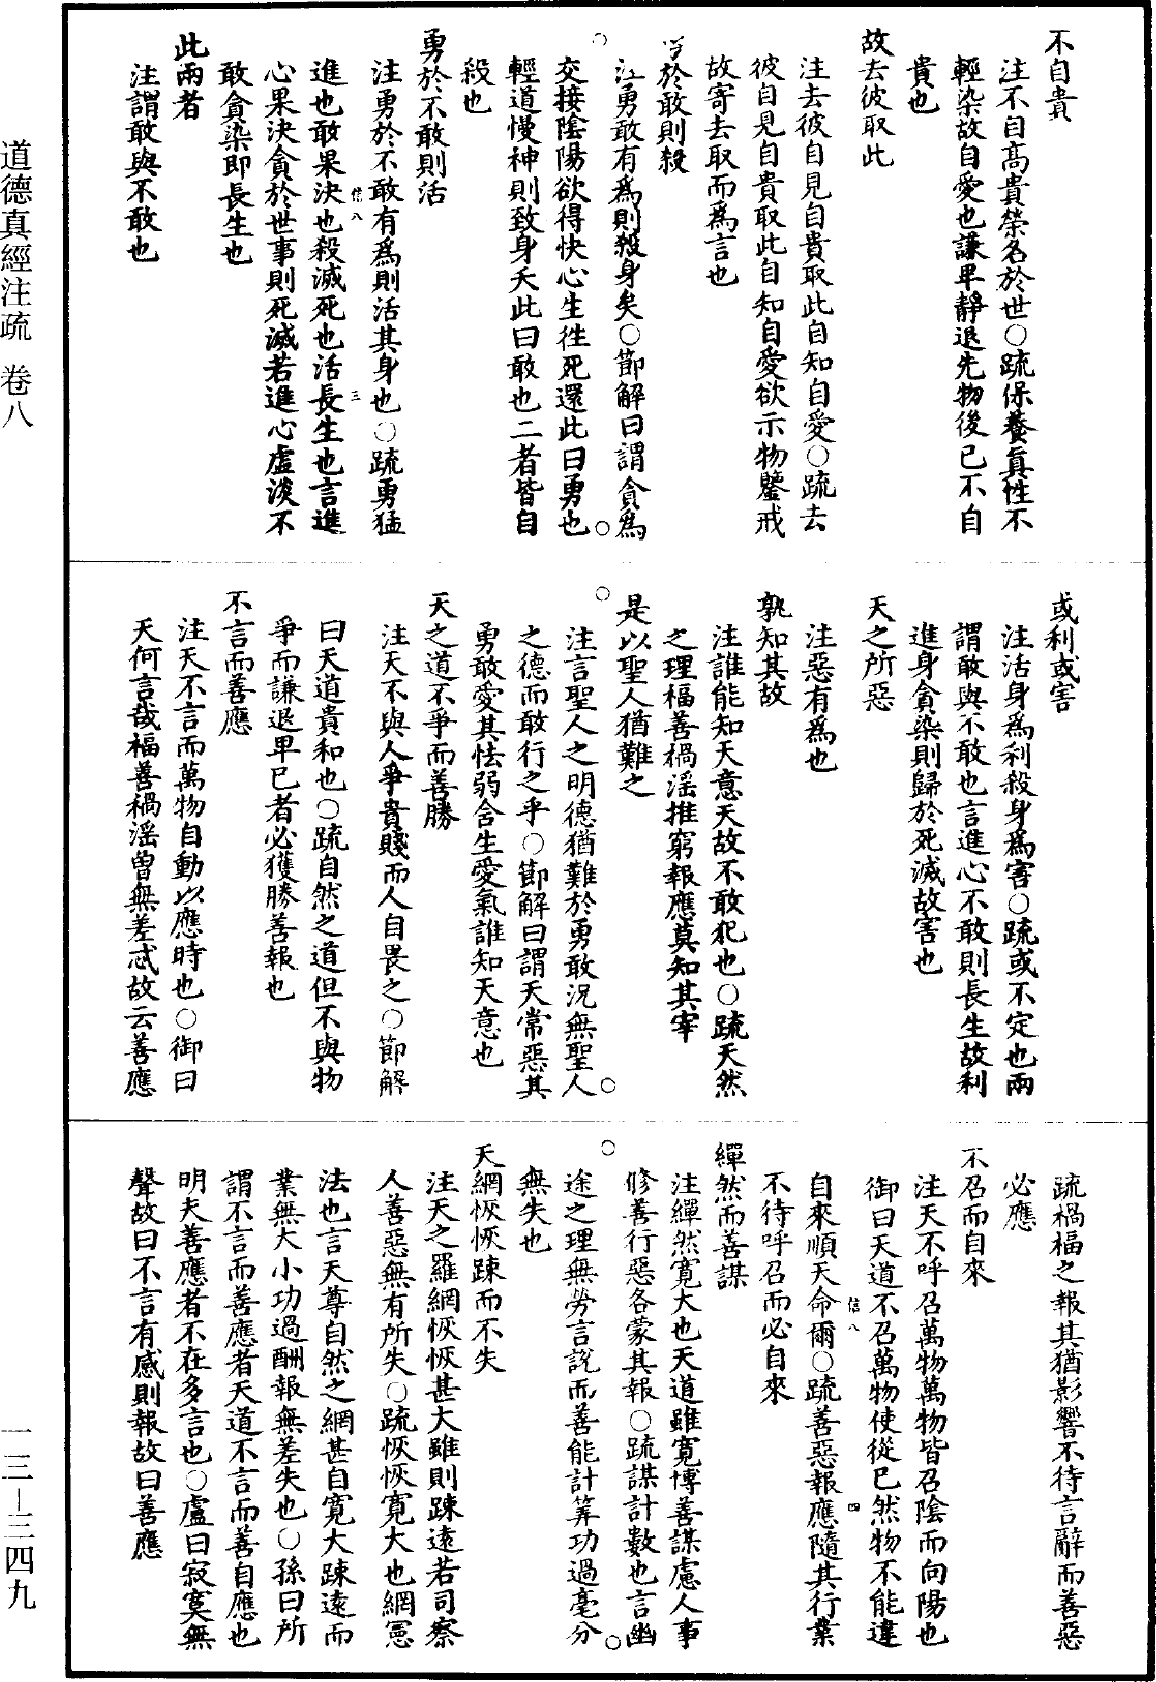 道德真經注疏 卷八
一三—三四九
不自貴
注不自高貴榮名於世○疏保養真性不
輕染故自愛也謙卑靜退先物後己不自
貴也
故去彼取此
注去彼自見自貴取此自知自愛○疏去
彼自見自貴取此自知自愛欲示物鑒戒
故寄去取而為言也
於敢則殺
注勇敢有為則殺身矣○節解曰謂貪為
交接陰陽欲得快心生徃死還此曰勇也
輕道慢神則致身夭此曰敢也二者皆自
殺也
勇於不敢則活
注勇於不敢有為則活其身也○疏勇猛
信八 三
進也敢果決也殺滅死也活長生也言進
心果決貪於世事則死滅若進心虛淡不
敢貪染即長生也
此兩者
注謂敢與不敢也
或利或害
注活身為利殺身為害○疏或不定也兩
謂敢與不敢也言進心不敢則長生故利
進身貪染則歸於死滅故害也
天之所惡
注惡有為也
孰知其故
注誰能知天意天故不敢犯也○疏天然
之理福善禍淫推窮報應莫知其宰
是以聖人猶難之
注言聖人之明德猶難於勇敢況無聖人
之德而敢行之乎○節解曰謂天常惡其
勇敢愛其怯弱含生愛氣誰知天意也
天之道不爭而善勝
注天不與人爭貴賤而人自畏之○節解
曰天道貴和也○疏自然之道但不與物
爭而謙退卑己者必獲勝善報也
不言而善應
注天不言而萬物自動以應時也○御曰
天何言哉福善禍淫曾無差忒故云善應
疏禍福之報其猶影響不待言辭而善惡
必應
不召而自來
注天不呼召萬物萬物皆召陰而向陽也
御曰天道不召萬物使從己然物不能違
信八 四
自來順天命爾○疏善惡報應隨其行業
不待呼召而必自來
繟然而善謀
注繟然寬大也天道雖寬博善謀慮人事
修善行惡各蒙其報○疏謀計數也言幽
途之理無勞言說而善能計筭功過毫分
無失也
天網恢恢踈而不失
注天之羅網恢恢甚大雖則踈遠若司察
人善惡無有所失○疏恢恢寬大也網憲
法也言天尊自然之網甚自寬大踈遠而
業無大小功過酬報無差失也○孫曰所
謂不言而善應者天道不言而善自應也
明夫善應者不在多言也○盧曰寂寞無
聲故曰不言有感則報故曰善應